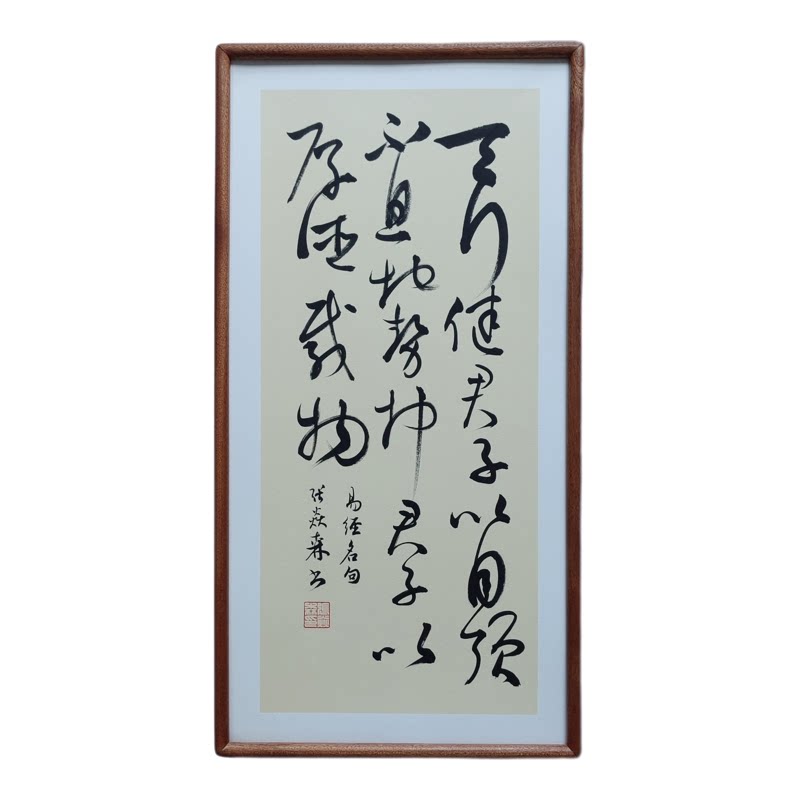 天行健君子以自強
不息地勢坤君子以
厚德載物
易經名句
張焱森书